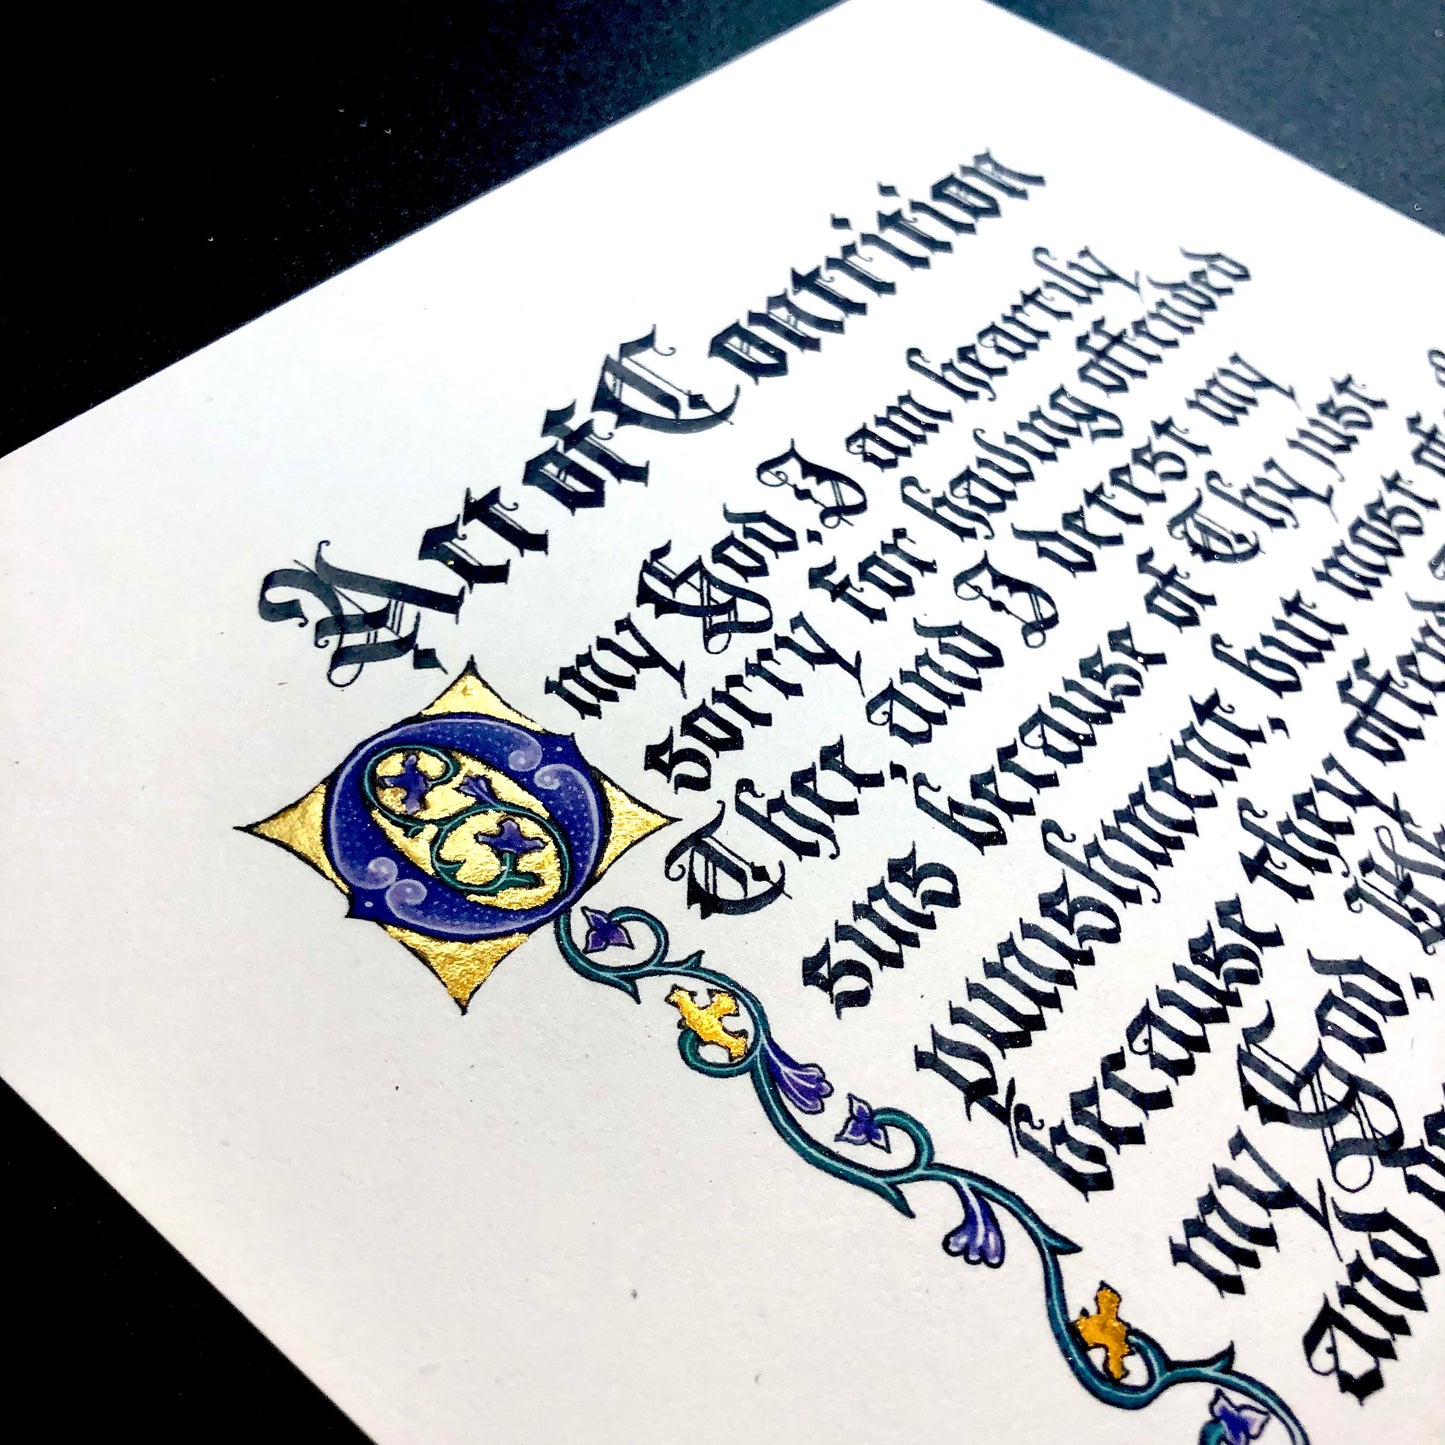 Act of Contrition
O my God, I am heartily
sorry for having offended
Thee, and I detest my
sins because of Thy just
punishment, but most of
because they offend
my God,
and